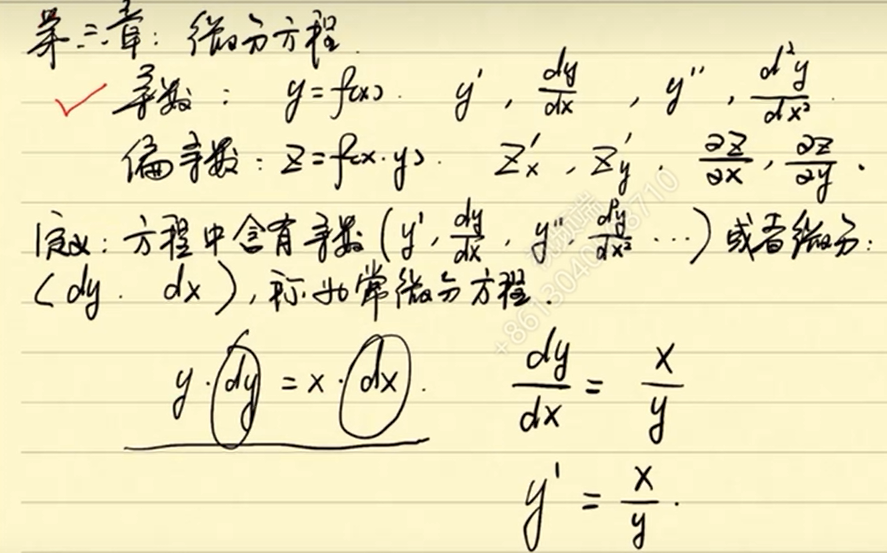 第三章：微分方程.
✓ 导数：y=f(x). y′, dy/dx, y″, d²y/dx².
偏导数：z=f(x·y). z′x, z′y. ∂z/∂x, ∂z/∂y.
定义：方程中含有导数(y′, dy/dx, y″, d²y/dx² …)或者微分：
(dy. dx), 称为常微分方程.
y·dy = x·dx. dy/dx = x/y
y′ = x/y.